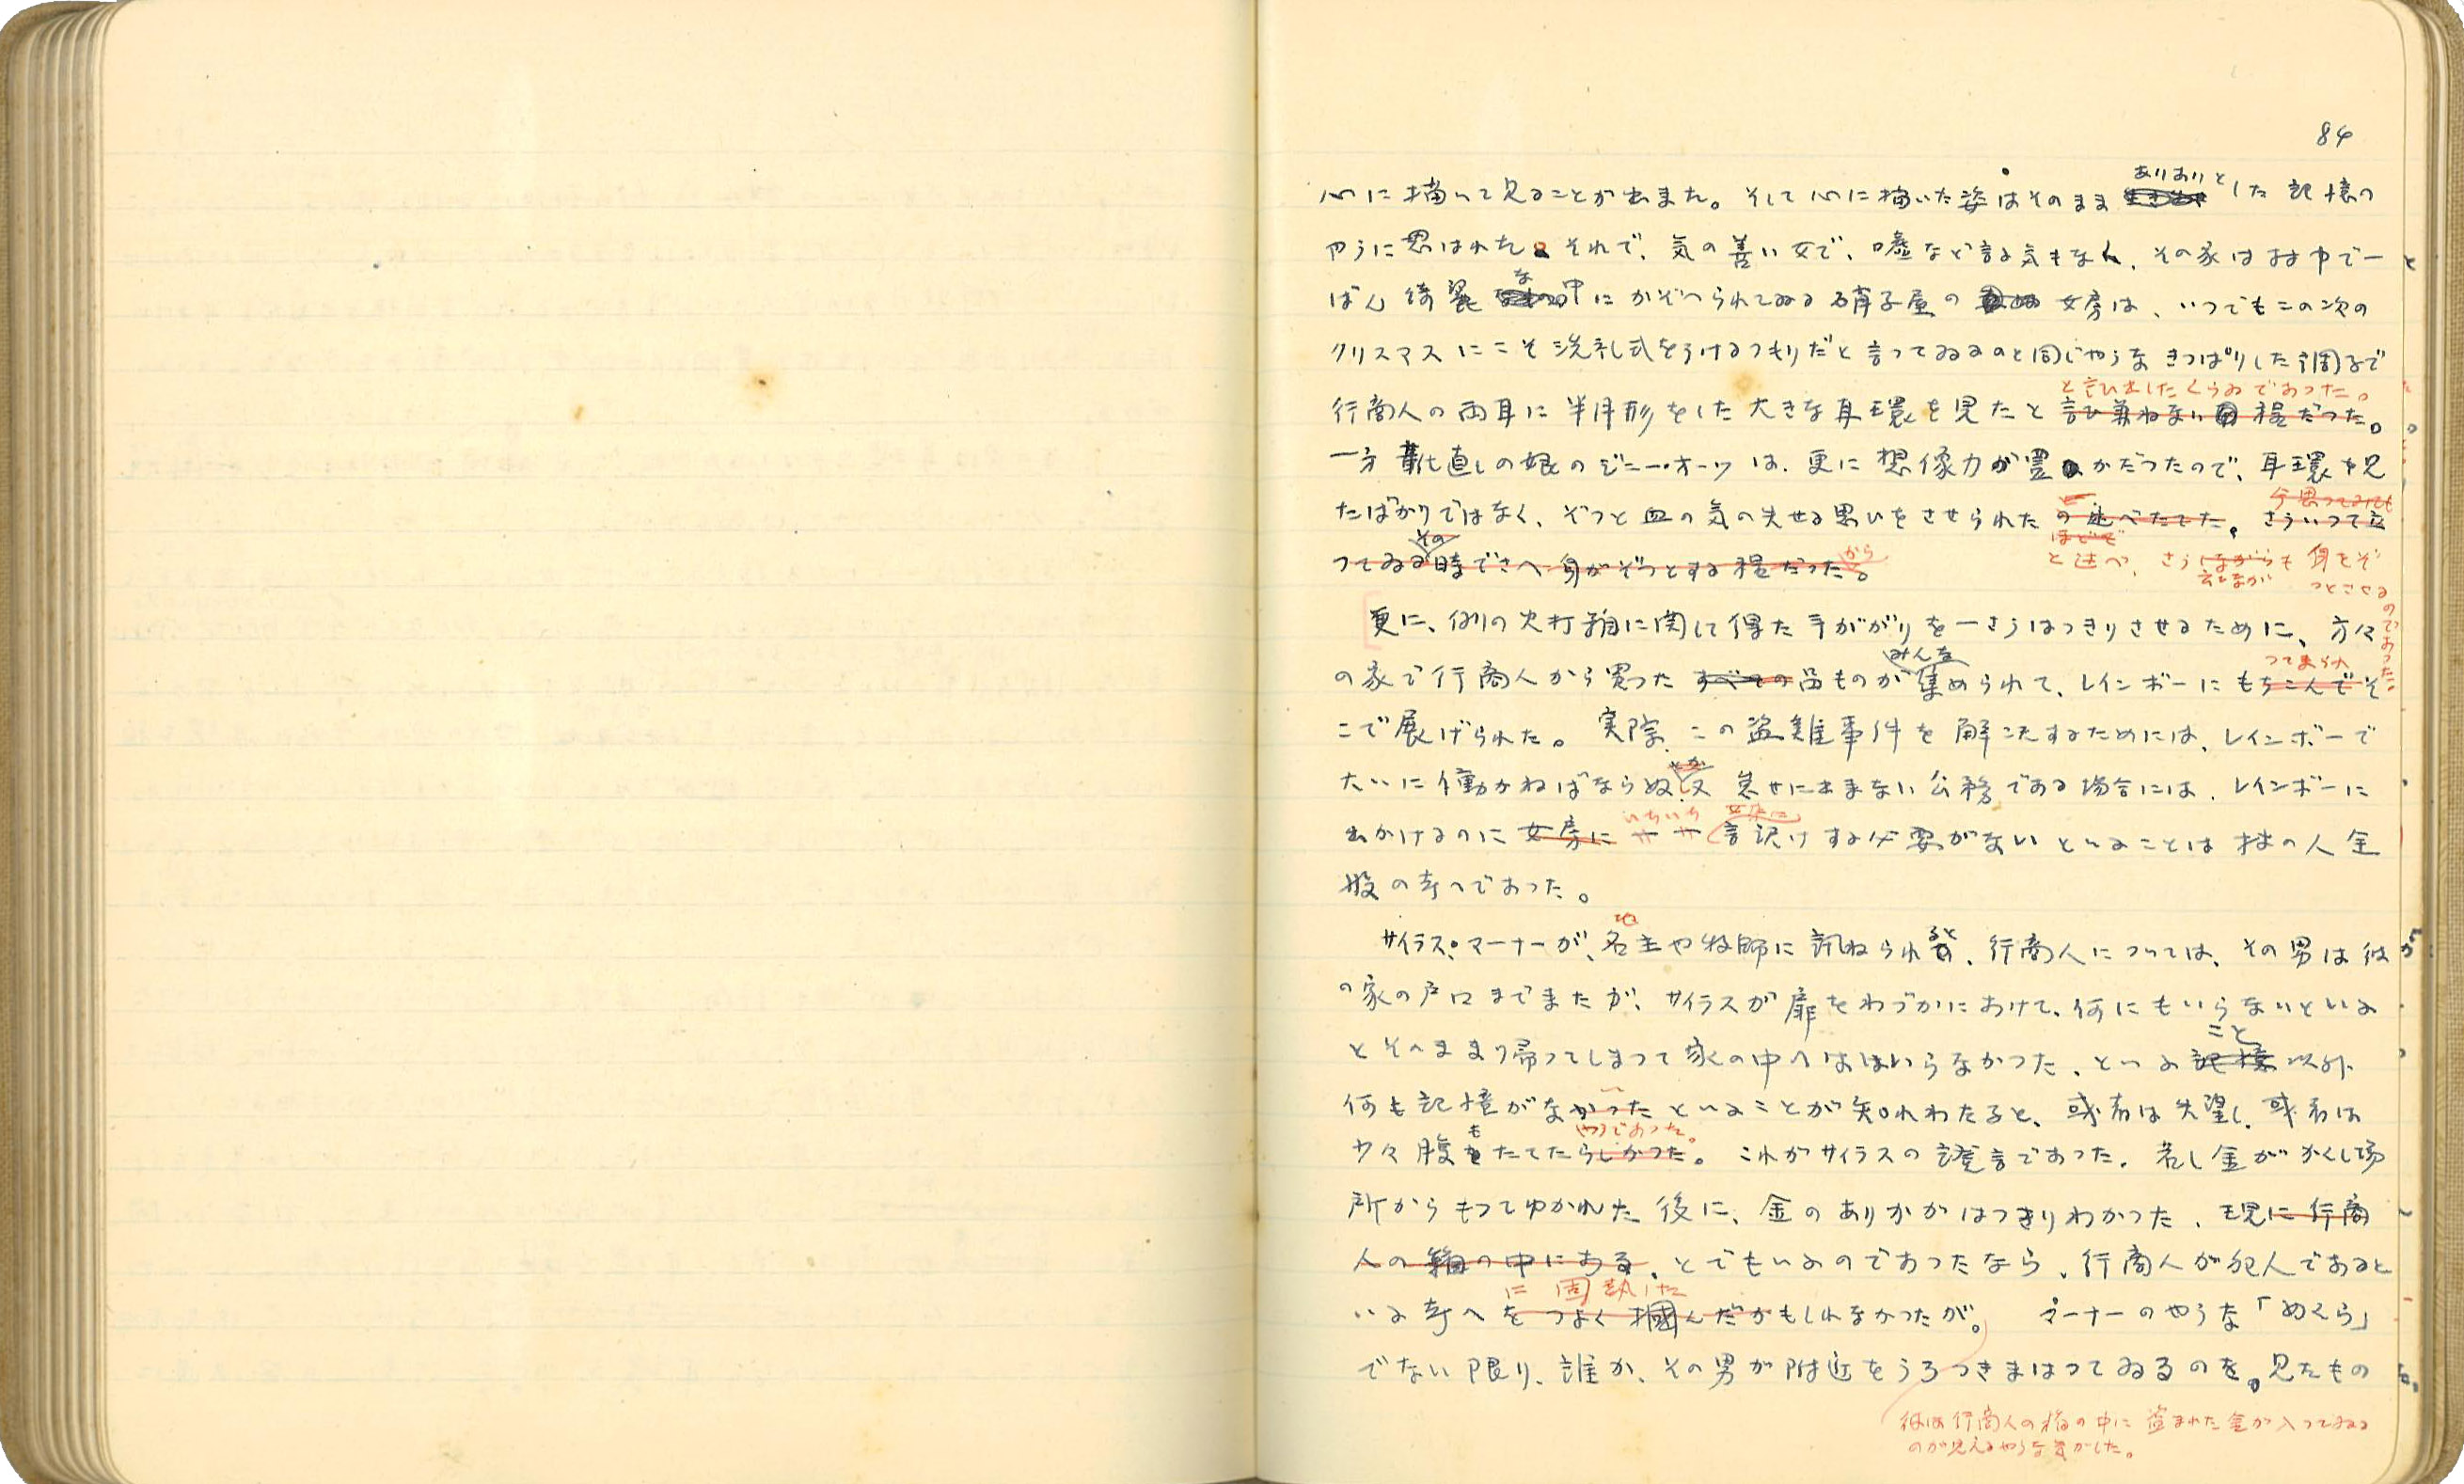 84
心に描いて見ることが出来た。そして心に描いた姿はそのままありありとした記憶の
やうに思はれた。それで、気の善い女で、嘘など言ふ気もなく、その家は村中で一
ばん綺麗な中にかぞへられてゐる硝子屋の女房は、いつでもこの次の
クリスマスにこそ洗礼式をうけるつもりだと言つてゐるのと同じやうなきつぱりした調子で
と言ひ出したくらゐであつた。
行商人の両耳に半月形をした大きな耳環を見たと言ひ兼ねない程だつた。
一方靴直しの娘のジニー・オーツは、更に想像力が豊かだつたので、耳環を見
今思つてみても
たばかりではなく、ぞつと血の気の失せる思ひをさせられたの述べたてた。さういつて立
ほどで
と述べ、さう言ひながらも身をぞ
つとさせるのであつた。
つてゐるその時でさへ身がぞつとする程だつたから。
更に、例の火打箱に関して得た手がかりを一さうはつきりさせるために、方々
の家で行商人から買つたすべての品ものがみんな集められて、レインボーにもちこんでそ
こで展げられた。実際、この盗難事件を解決するためには、レインボーで
たいに働かねばならぬとか又怠せに出来ない公務である場合には、レインボーに
いちいち 女房に
出かけるのに女房に一々言訳けする必要がないといふことは村の人全
般の考へであつた。
地
サイラス・マーナーが、名主や牧師に訊ねられると、行商人については、その男は彼
の家の戸口まで来たが、サイラスが扉をわづかにあけて、何にもいらないといふ
とそのまま帰つてしまつて家の中へははいらなかつた、といふこと記憶以外
何も記憶がなかつたといふことが知れわたると、或者は失望し、或者は
やうであつた。
少々腹もたてたらしかつた。これがサイラスの証言であつた。若し金がかくし場
所からもつてゆかれた後に、金のありかがはつきりわかつた、現に行商
人の箱の中にある、とでもいふのであつたなら、行商人が犯人であると
に固執した
いふ考へをつよく掴んだかもしれなかつたが。マーナーのやうな「めくら」
でない限り、誰か、その男が附近をうろつきまはつてゐるのを、見たもの
彼は行商人の箱の中に盗まれた金が入つてゐる
のが見えるやうな気がした。